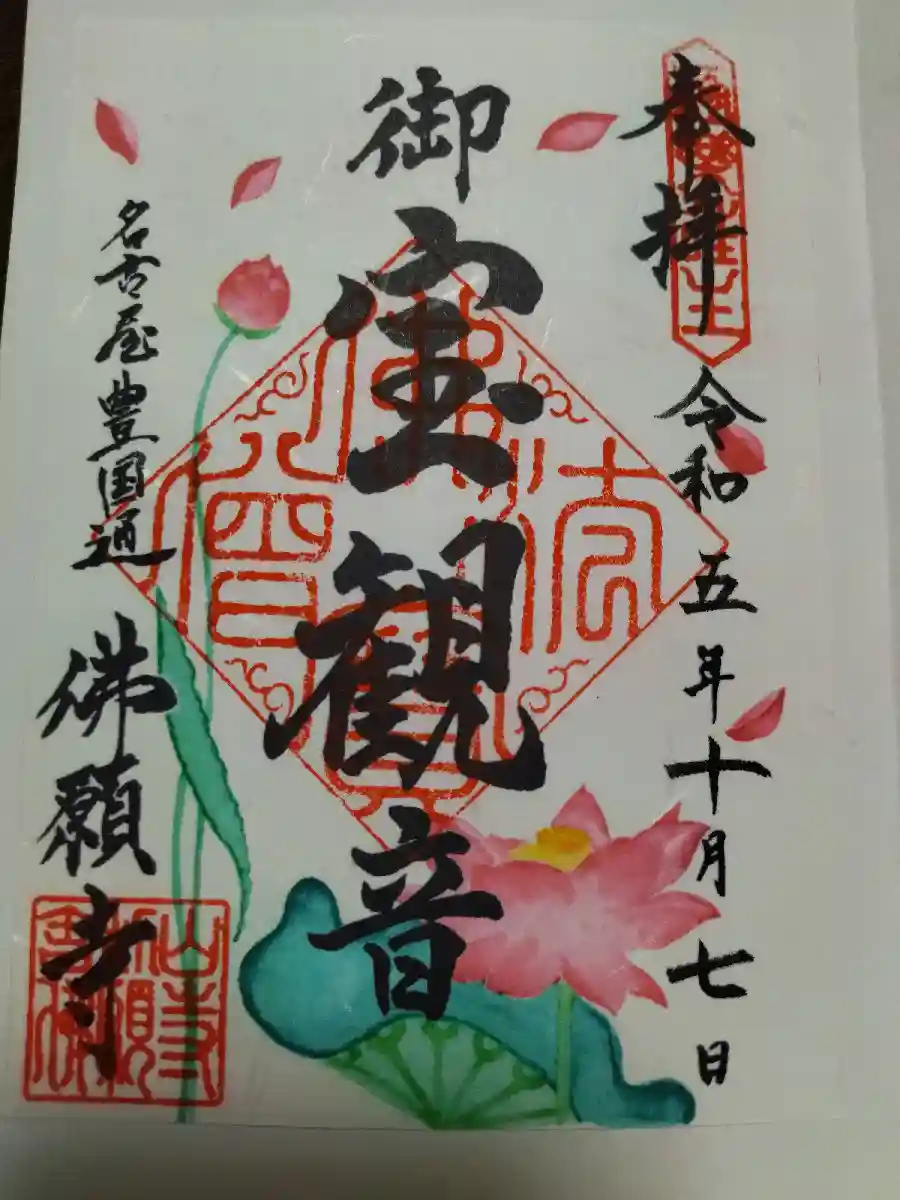 奉拝 令和五年十月七日
御宝観音
名古屋豊国通 佛願寺
佛法僧寳